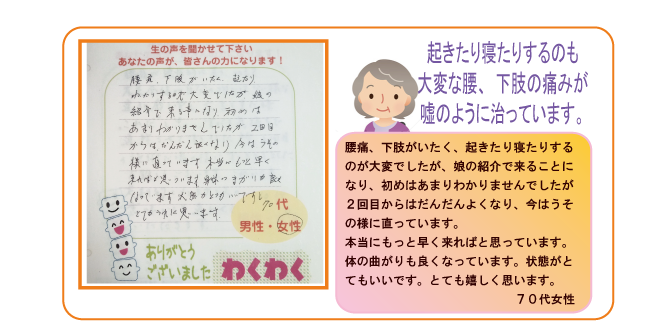 生の声を聞かせて下さい
あなたの声が、皆さんの力になります！
腰痛、下肢がいたく、起きたり
ねたりするのが大変でしたが 娘の
紹介で来る事になり 初めは
あまりわかりませんでしたが 2回目
からはだんだん良くなり 今はうその
様に直っています 本当にもっと早く
来ればと思っています
とてもうれしく思います
70代
男性・女性
ありがとう
ございました
わくわく
起きたり寝たりするのも
大変な腰、下肢の痛みが
嘘のように治っています。
腰痛、下肢がいたく、起きたり寝たりする
のが大変でしたが、娘の紹介で来ることに
なり、初めはあまりわかりませんでしたが
２回目からはだんだんよくなり、今はうそ
の様に直っています。
本当にもっと早く来ればと思っています。
体の曲がりも良くなっています。状態がと
てもいいです。とても嬉しく思います。
７０代女性